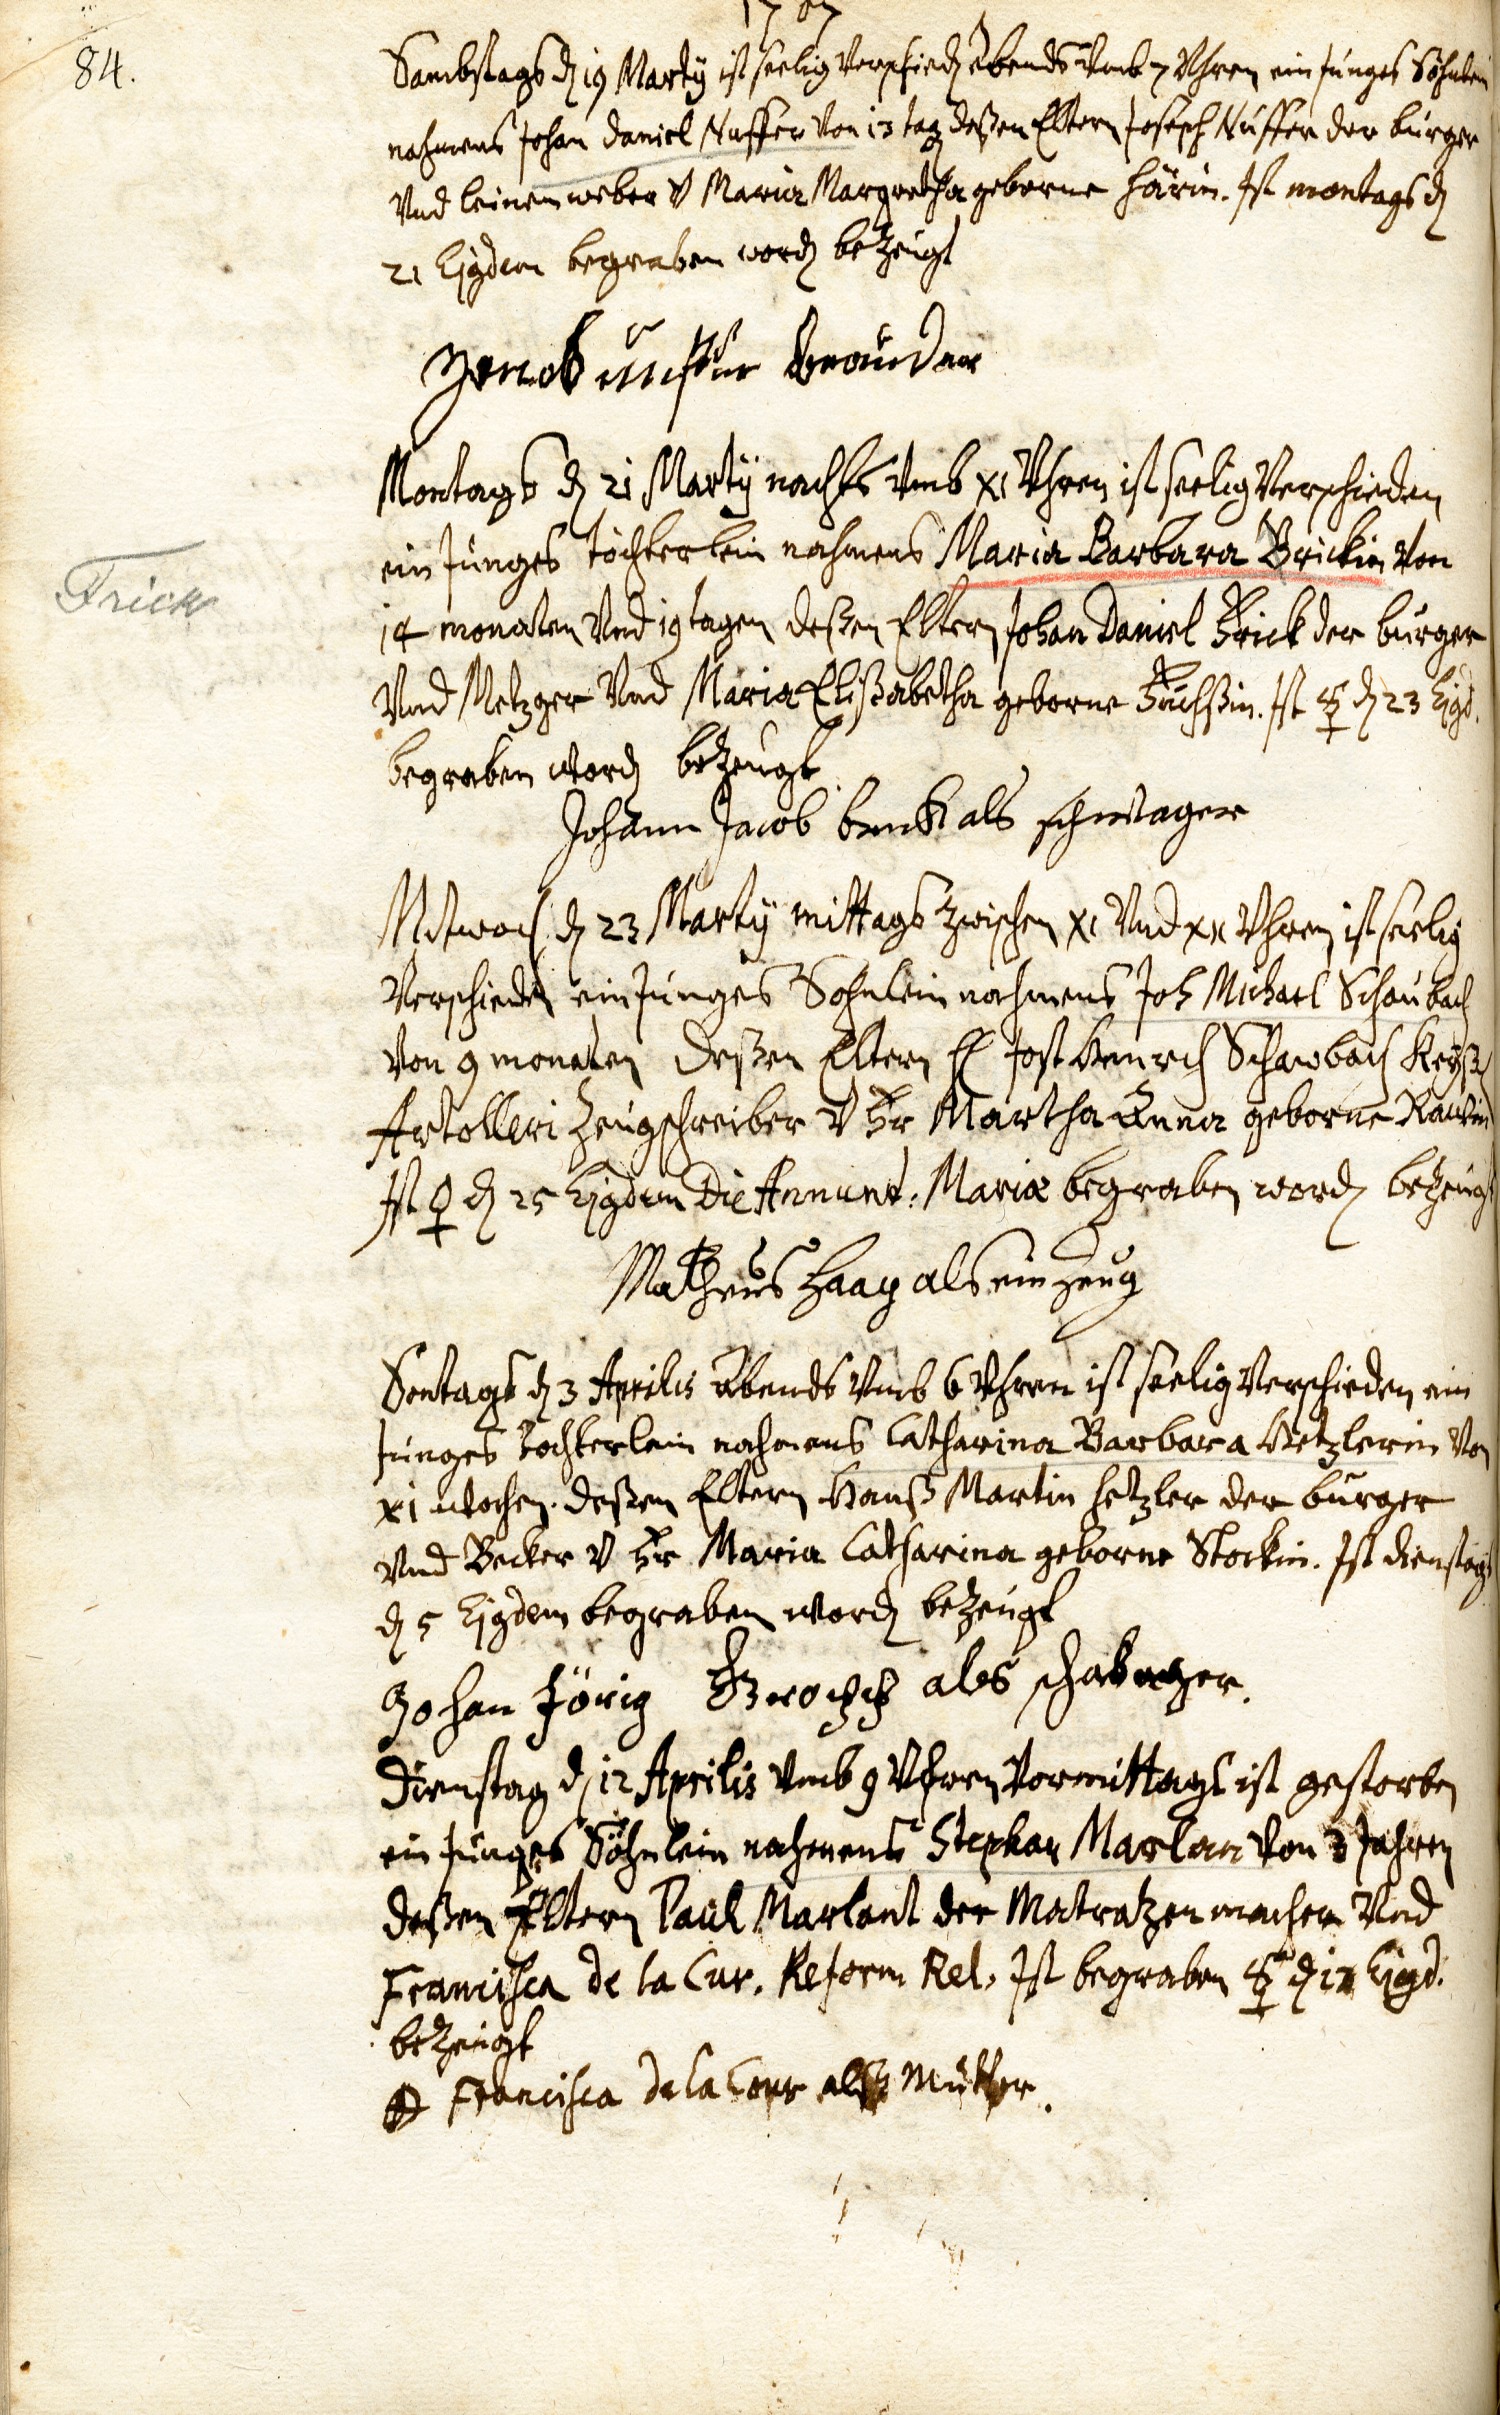 1707
84.
Sambstags dn 19 Martÿ ist seelig verschiedn Abends Vmb 7 Vhren ein Junges Söhnlein
nahmens Johan Daniel Nuffer Von 13 tag deßen Eltern Joseph Nuffer der burger
Vnd leinenweber V Maria Margretha geborne Härin. Ist montags dn
21 Ejgdem begraben wordn bezeugt
Jacob als bruder
Montags dn 21 Martÿ nachts Vmb XI Vhren ist seelig Verschieden
ein Junges töchterlein nahmens Maria Barbara Frickin Von
Frick
14 monaten Vnd 19 tagen deßen Eltern Johan Daniel Frick der burger
Vnd Metzger Vnd Maria Elißabetha geborne Fuchßin. Ist ☿ dn 23 Ejgd.
begraben wordn bezeugt
Johann Jacob als schwager
Mitwoch dn 23 Martÿ mittags zwischen XI Vnd XII Vhren ist seelig
Verschieden ein Junges Sohnlein nahmens Joh Michael Schaubach
Von 9 monaten deßen Eltern H Jost Henrich Schawbach Keyßl
Artolleri Zeugschreiber V Fr Martha Anna geborne
Ist ♀ dn 25 Ejgdem Die Annunt: Mariæ begraben wordn bezeugt
Matheus Haag als ein zeug
Sontags dn 3 Aprilis Abends Vmb 6 Vhren ist seelig Verschieden ein
Junges tochterlein nahmens Catharina Barbara Hetzlerin Von
XI wochen. deßen Eltern Hanß Martin Hetzler der burger
Vnd Becker V Fr Maria Catharina geborne Stockin. Ist dienstags
dn 5 Ejgdem begraben wordn bezeugt
Johan Jörig als
Dienstag dn 12 Aprilis Vmb 9 Vhren Vormittags ist gestorben
ein Junges Söhnlein nahmens Stephan Marlan Von 3 Jahren
deßen Eltern Paul Marlant der Matratzenmacher Vnd
Francisca de la Cur. Reform. Rel. Ist begraben ☿ dn Ejgd.
bezeugt
Francisca de la Cour alß Mutter.